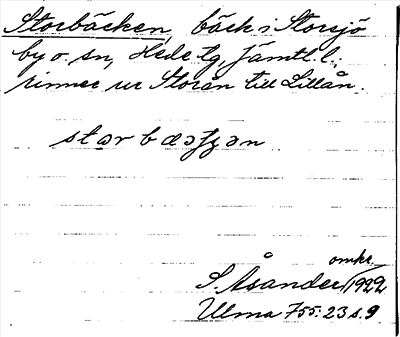 Storbäcken, bäck i Storsjö
by o. sn, Hede tg, Jämtl. l.;
rinner ur Storån till Lillån.
størbæəʈʂən
omkr.
S. Åsander 1922
Ulma 755: 23 s. 9